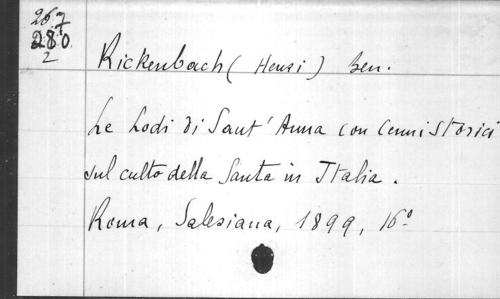 267
280
2
Rickenbach (Henri) Ben.
Le Lodi di Sant' Anna con Cenni Storici
sul culto della Santa in Italia.
Roma, Salesiana, 1899, 16°